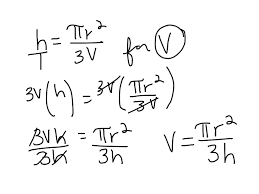 h/1 = πr²/3V for V
3V(h) = 3V(πr²/3V)
3Vh/3h = πr²/3h V = πr²/3h